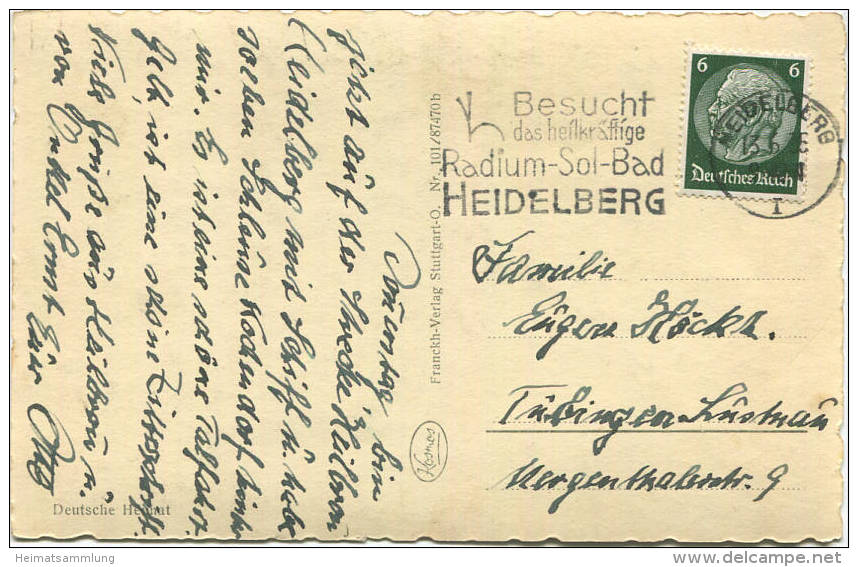 Besucht
das heilkräftige
Radium-Sol-Bad
HEIDELBERG
6 6
Deutsches Reich
HEIDELBERG
I
Familie
Eugen Höckh.
Tübingen Lustnau
Mergenthalerstr. 9
Franckh-Verlag Stuttgart-O. Nr. 101/87470b
Kosmos
Sonntag, bin
jetzt auf der Strecke Heilbronn
Heidelberg mit Schiff u. habe
soeben Schleuse Kochendorf hinter
mir. Es ist eine schöne Talfahrt.
Gelt, ist eine schöne
Viele Grüße aus Heilbronn u.
von Onkel Ernst Euer Otto
Deutsche Heimat
Heimatsammlung
delcampe.net